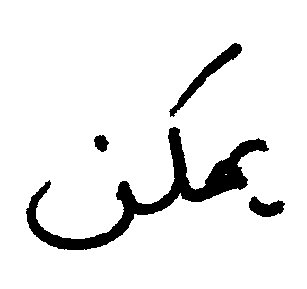 يمكن